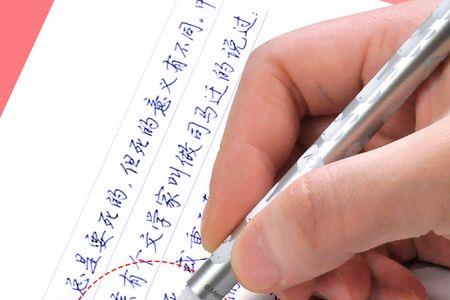 总是要死的，但死的意义有不同。中
有个文学家叫做司马迁的说过：
或重